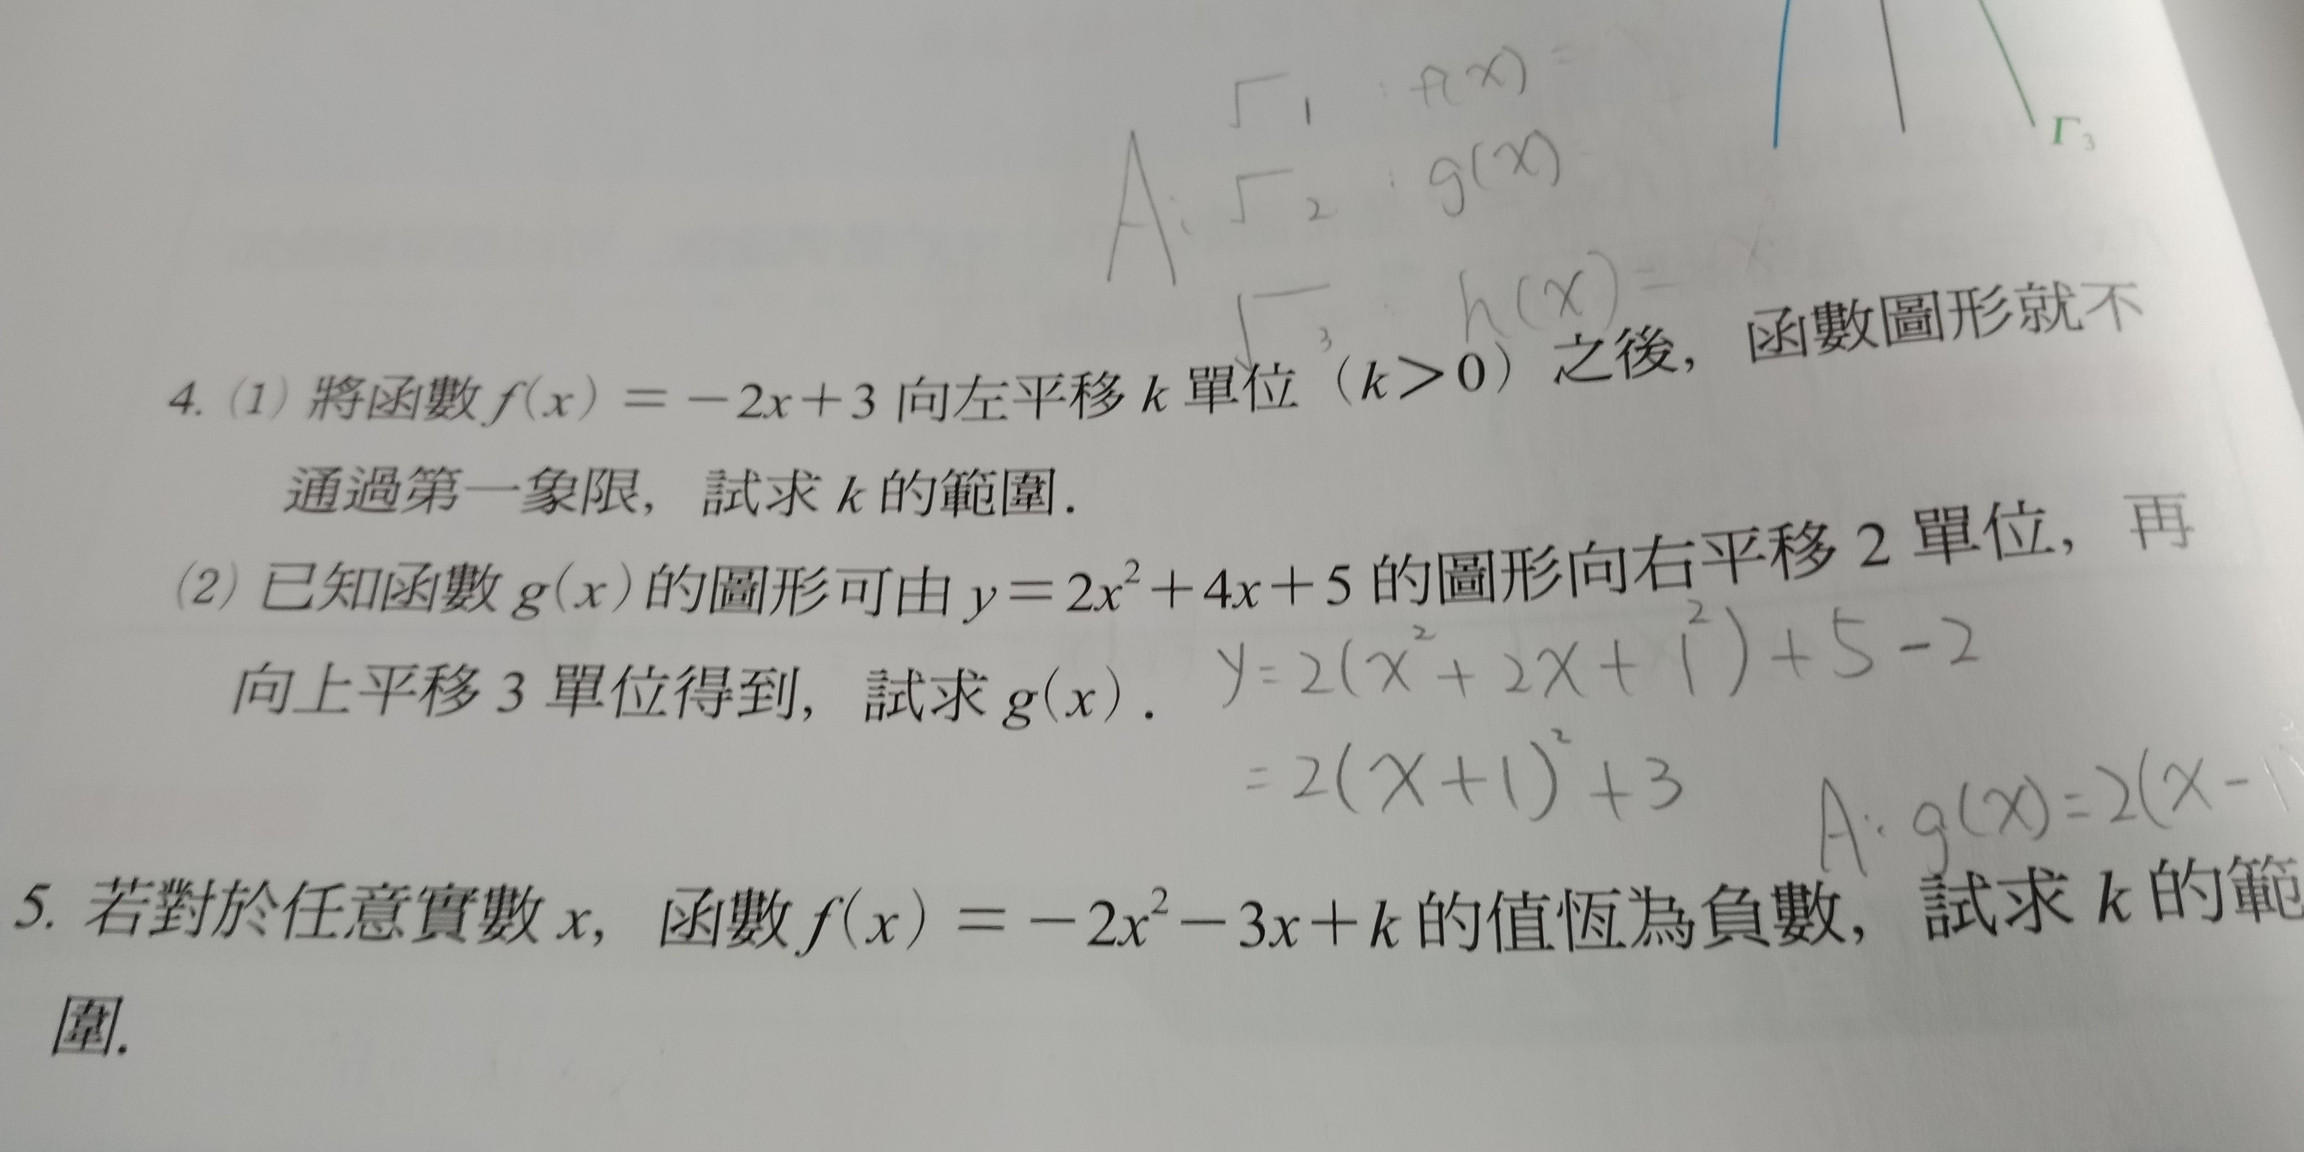 Γ₃
Γ₁ : f(x) =
A: Γ₂ : g(x)
Γ₃ : h(x) =
4. (1) 將函數 f(x) = −2x+3 向左平移 k 單位（k>0）之後，函數圖形就不
通過第一象限，試求 k 的範圍.
(2) 已知函數 g(x) 的圖形可由 y=2x²+4x+5 的圖形向右平移 2 單位，再
向上平移 3 單位得到，試求 g(x).
y=2(x²+2x+1²)+5-2
=2(x+1)²+3
A: g(x)=2(x-1)
5. 若對於任意實數 x，函數 f(x) = −2x²−3x+k 的值恆為負數，試求 k 的範
圍.